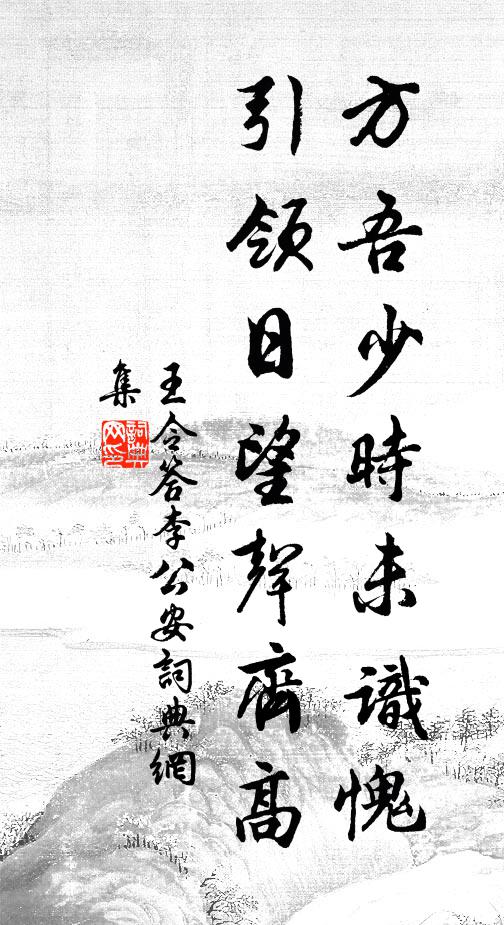 方吾少時未識愧
引領日望聲齊高
王令答李公安詞典網
集